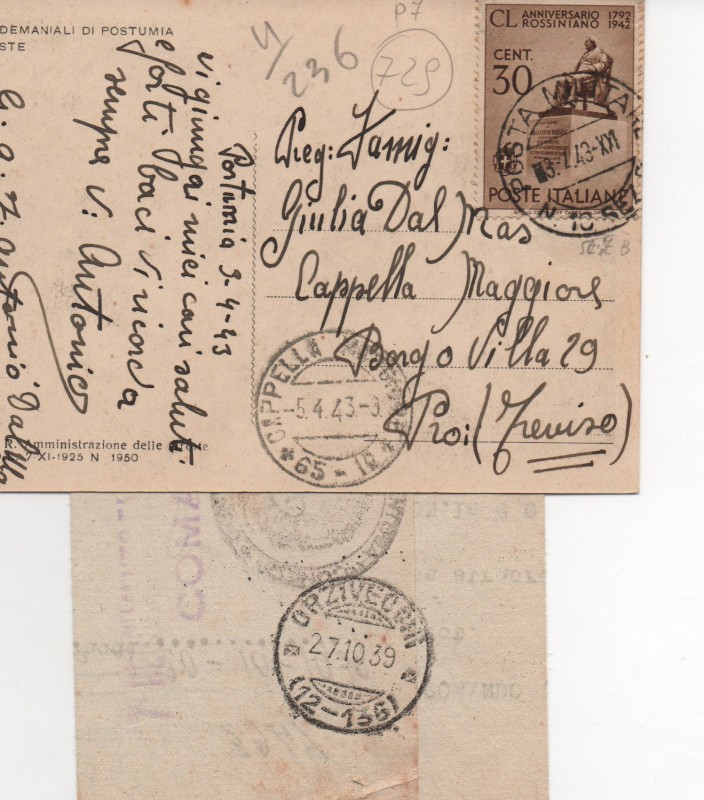 DEMANIALI DI POSTUMIA
STE
P7
4/236
729
CL ANNIVERSARIO 1792
ROSSINIANO 1942
CENT.
30
POSTE ITALIANE
POSTA MILITARE
3-4.43-XXI
N. 10
SEZ B
Postumia 3-4-43
vi giungai miei cari saluti
e forti baci vi ricorda
sempre v. Antonio
Preg: Famig:
Giulia Dal Mas
Cappella Maggiore
Borgo Villa 29
Pro: (Treviso)
CAPPELLA
-5.4.43-
*65-
R. Amministrazione delle
7-XI-1925 N 1950
COMA
ORZIVECCHI
27.10.39
(12-136)